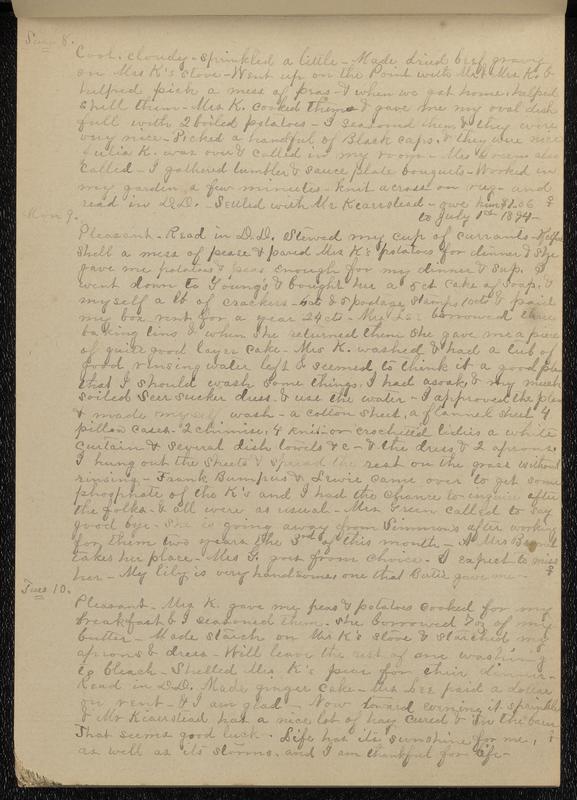 Sun 8.
Cool, cloudy - sprinkled a little - Made dried beef gravy
on Mrs K's stove - Went up on the Point with Mr & Mrs K. &
helped pick a mess of peas - & when we got home helped
shell them - Mrs K. cooked them & gave me my oval dish
full with 2 boiled potatoes - I seasoned them & they were
very nice - Picked a handful of Black caps & they were nice
Julia K. was over & called in my room - Mrs also
called - I gathered tumbler & sauce plate bouquets - Worked in
my garden a few minutes - knit across on rug - and
read in D.D. - Settled with Mr Kearstead - owe him $1.06
to July 1st 1894 -
Mon 9.
Pleasant - Read in D.D. Stewed my cup of currants - Helped
shell a mess of pease & pared Mrs K's potatoes for dinner & she
gave me potatoes & peas enough for my dinner & sup. I
went down to Young's & bought her a 5ct cake of soap, &
myself a lb of crackers - & 5 postage stamps 10cts & paid
my box rent for a year 24 cts - Mrs Lee borrowed three
baking tins & when she returned them she gave me a piece
of quite good layer cake - Mrs K. washed & had a tub of
good rinsing water left & seemed to think it a good plan
that I should wash some things I had asoak, & my much
soiled Seersucker dress & use the water - I approved the plan
& made myself wash - a cotton sheet, a flannel sheet 4
pillow cases - 2 chimise, 4 knit or crocheted tidies a white
curtain & several dish towels &c - & the dress & 2 aprons
I hung out the sheets & spread the rest on the grass without
rinsing - Frank Bumpus & Lewie came over to get some
phosphate of the K's and I had the chance to enquire after
the folks & all were as usual - Mrs Green called to say
good bye. She is going away from Simmons after working
for them two years the 3rd of this month - A Mrs
takes her place - Mrs G. goes from choice - I expect to miss
her - My lily is very handsome one that Bertie gave me -
Tues 10.
Pleasant - Mrs K. gave me peas & potatoes cooked for my
breakfast & I seasoned them. She borrowed 7 oz of my
butter - Made starch on Mrs K's stove & starched my
aprons & dress - Will leave the rest of my washing
to bleach - Shelled Mrs K's peas for their dinner -
Read in D.D. Made ginger cake - Mrs Lee paid a dollar
on rent - & I am glad - Now toward evening it sprinkles
& Mr Kearstead has a nice lot of hay cured & in the barn
That seems good luck. Life has its sunshine for me,
as well as its storms, and I am thankful for life -